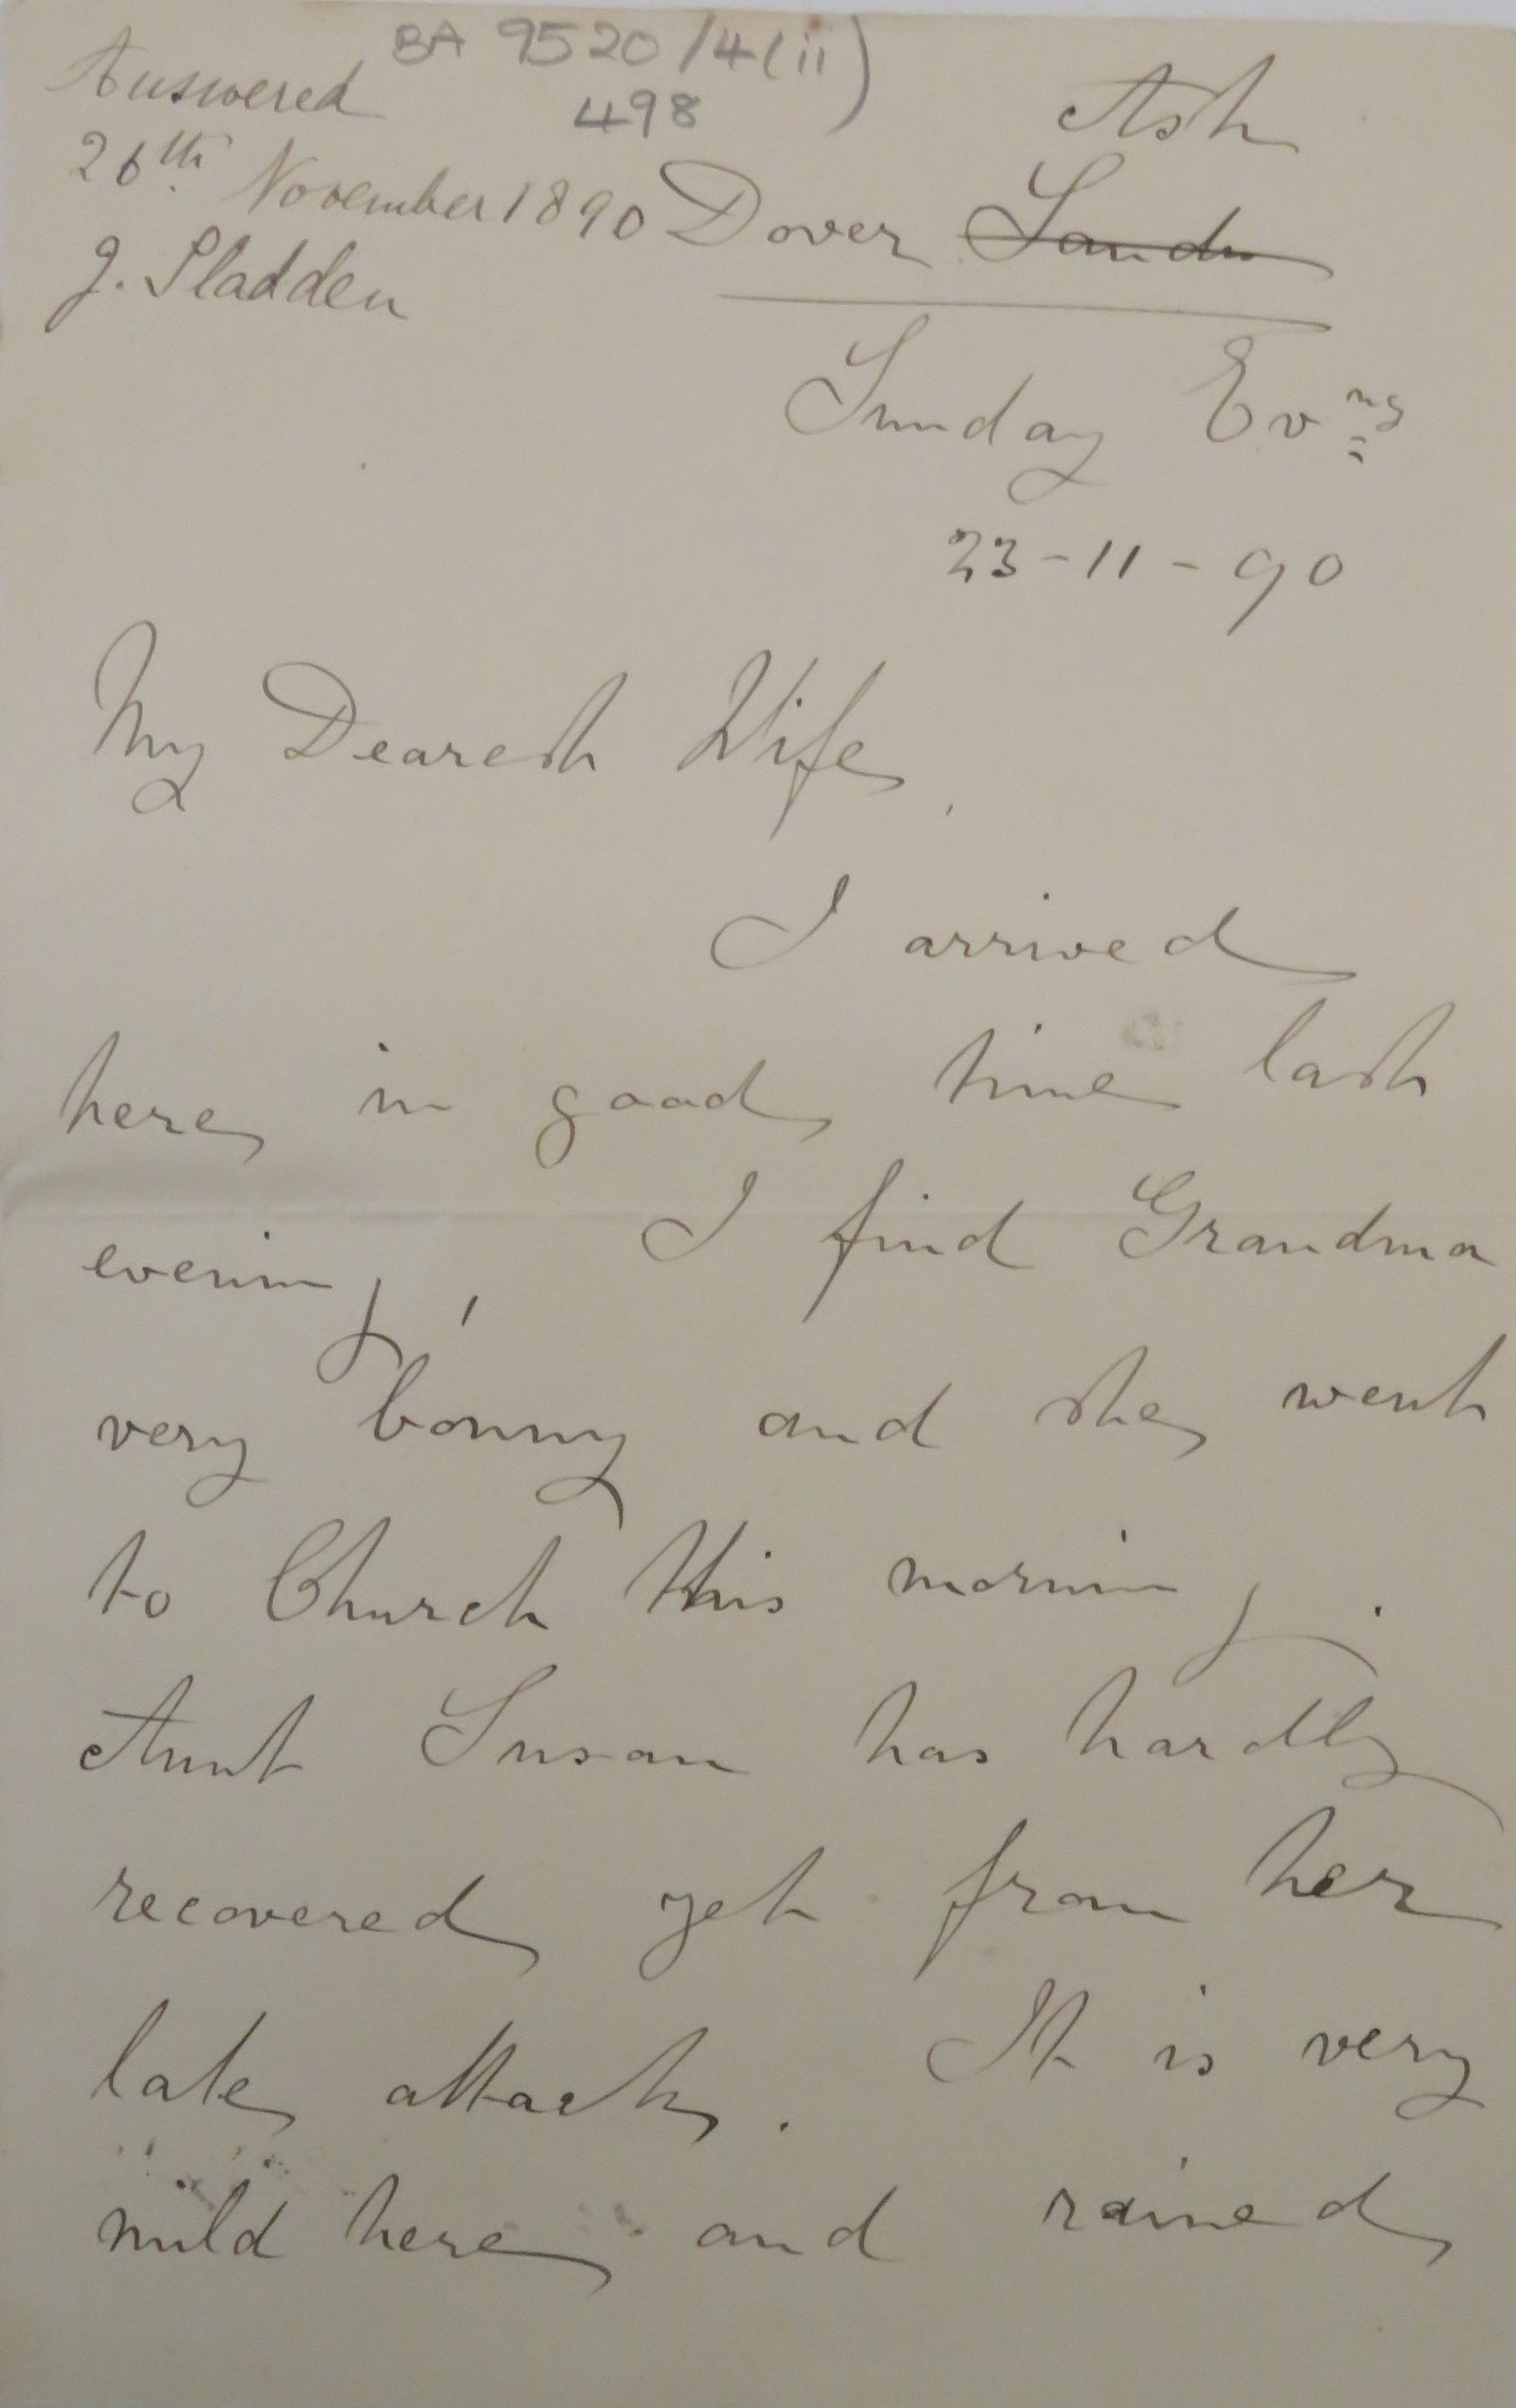 BA 9520/4(ii)
498
Answered
26th November 1890
J. Sladden
Ash
Dover Sand
Sunday Evng
23-11-90
My Dearest Wife,
I arrived
here in good time last
evening, I find Grandma
very bonny and she went
to Church this morning.
Aunt Susan has hardly
recovered yet from her
late attack. It is very
mild here and rained